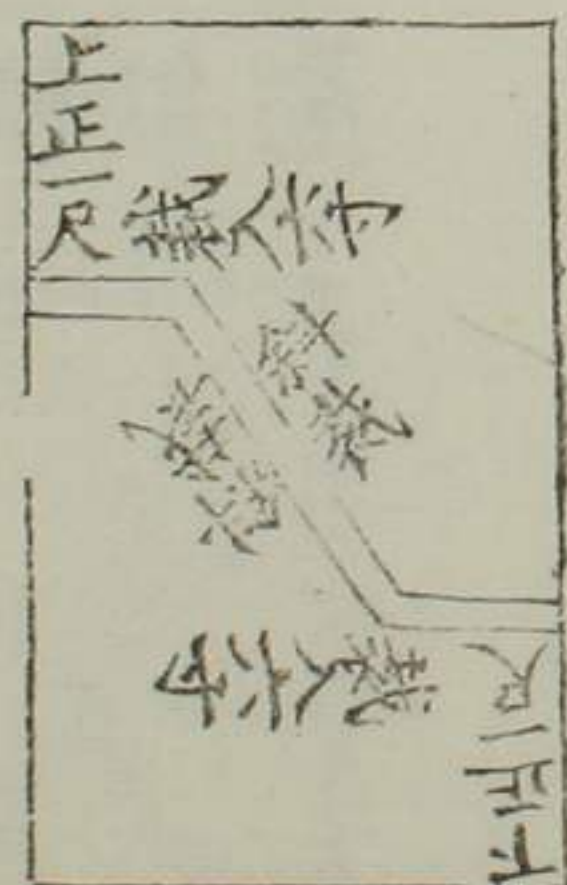 上正一尺
裁入六寸
斜裁
斜裁
裁入六寸
下正一尺